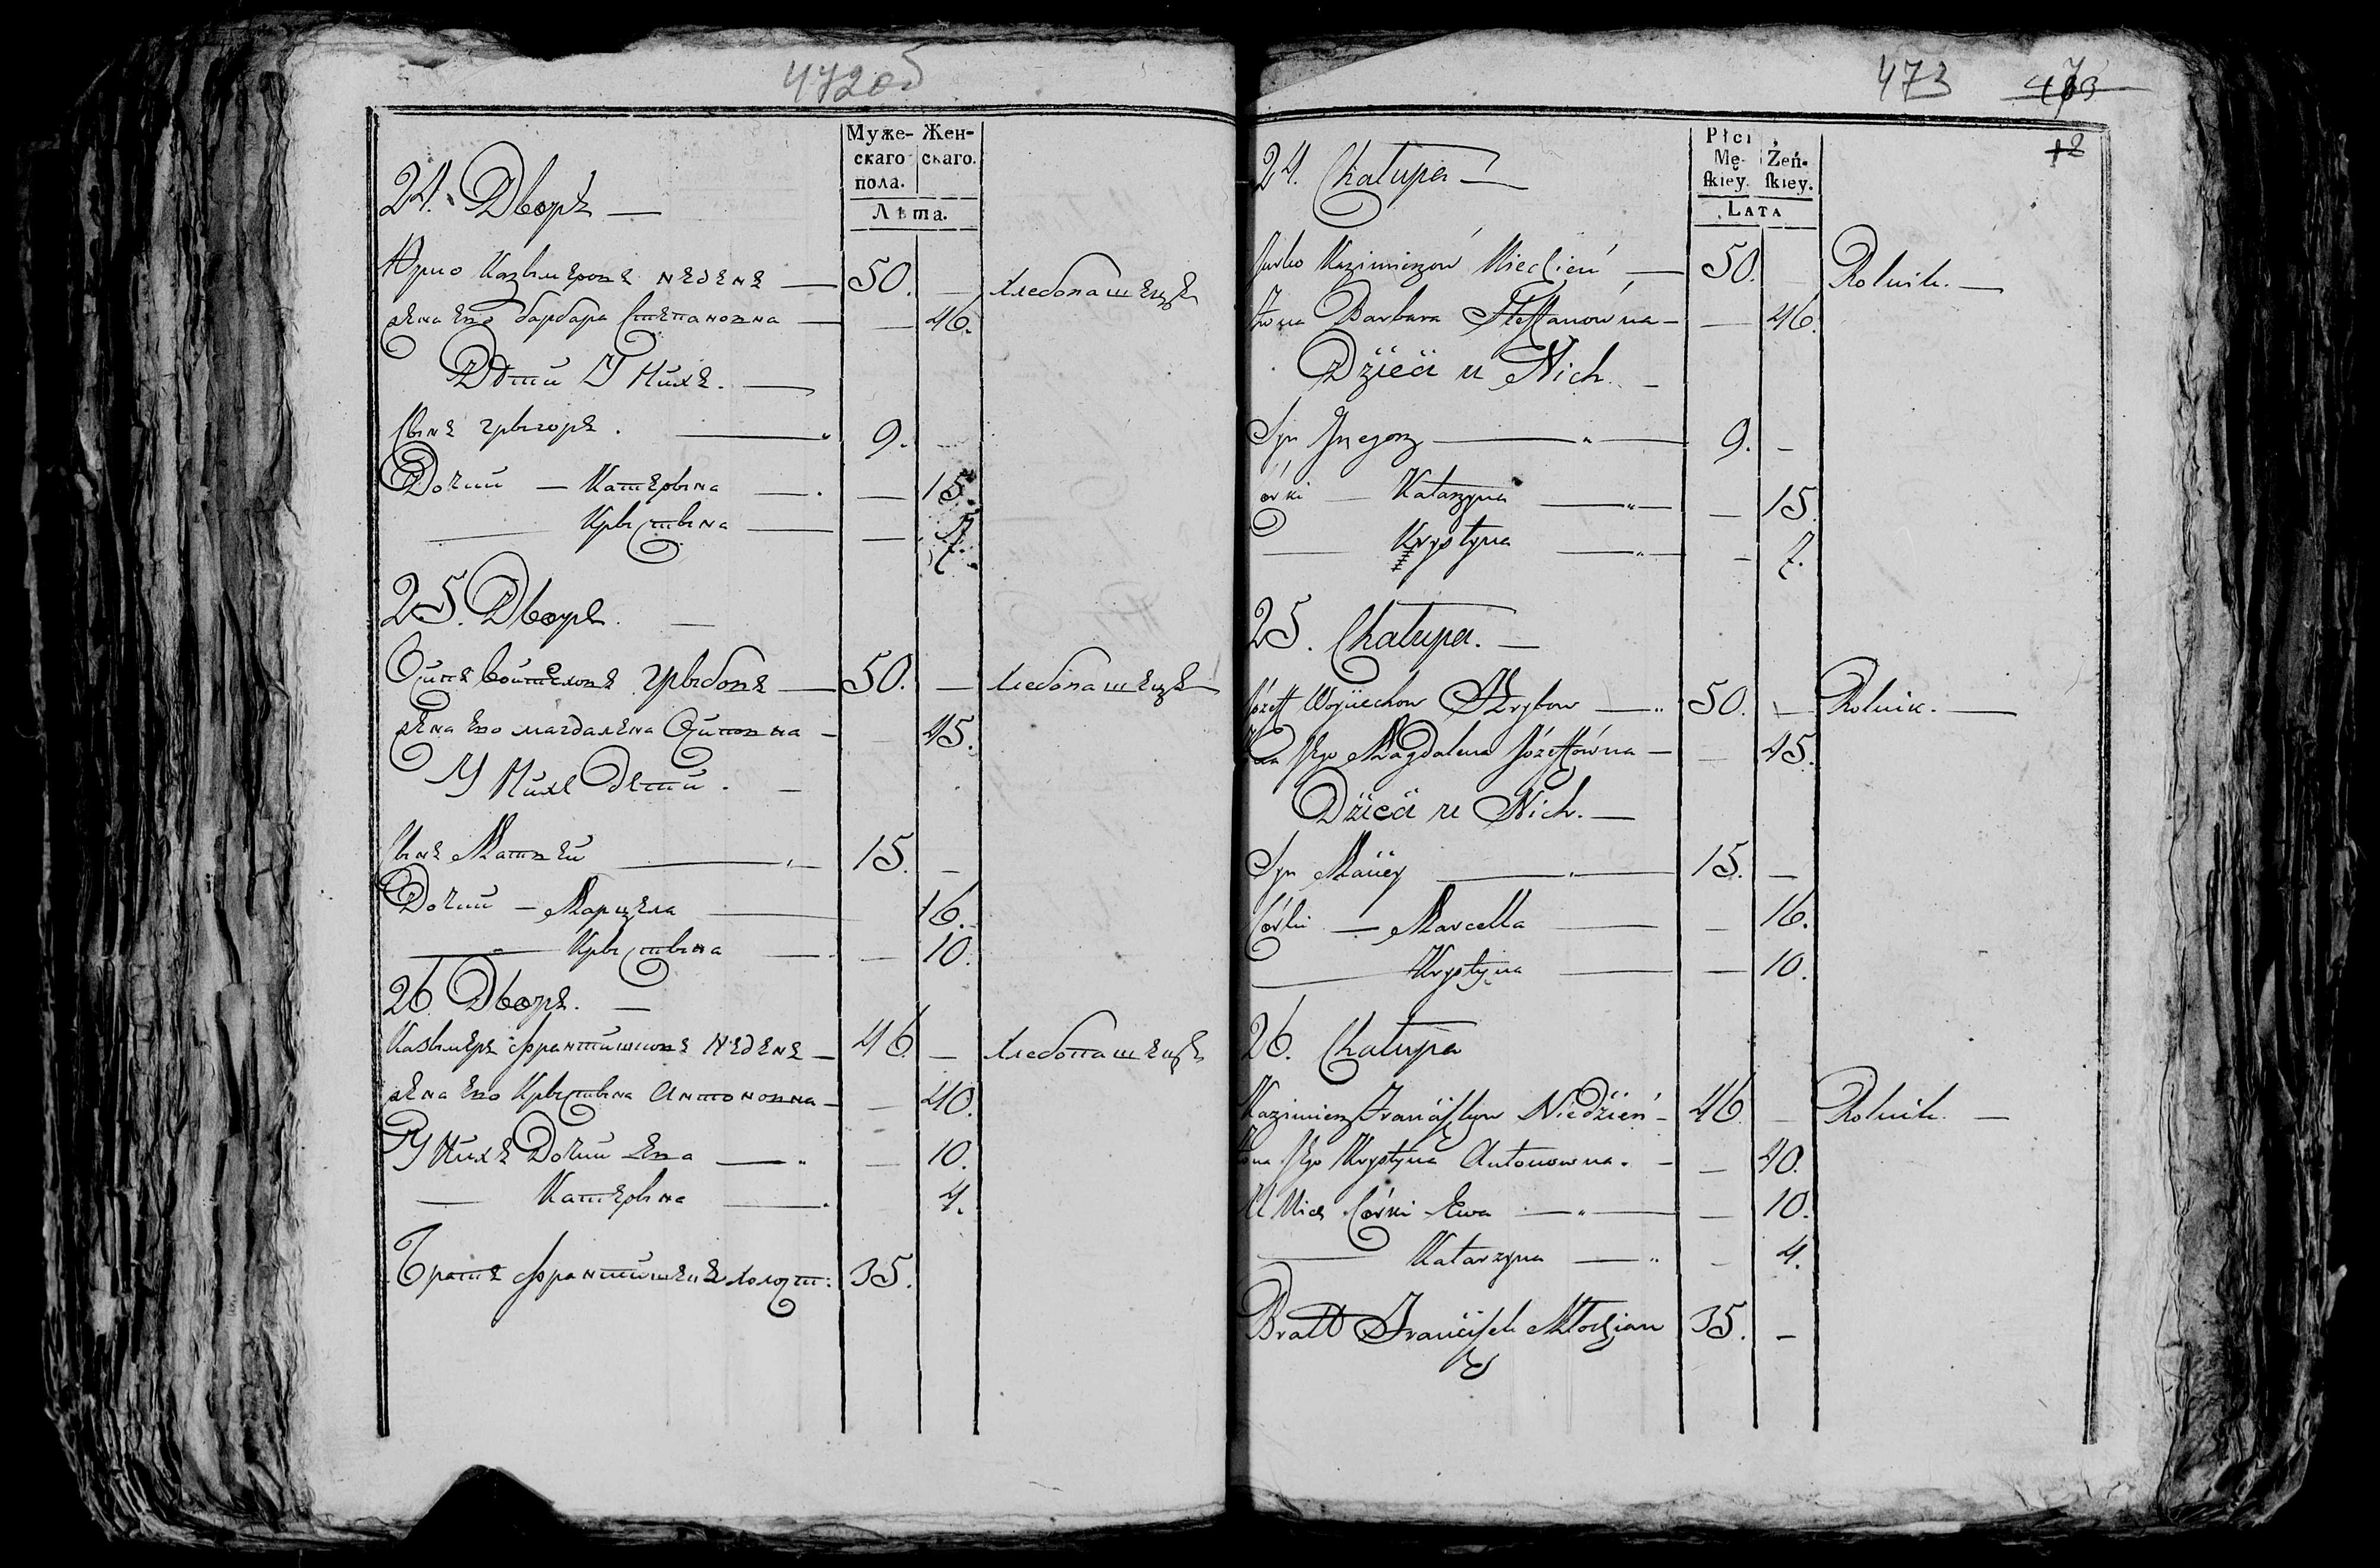 472об
Муже- Жен-
скаго скаго.
пола.
Лѣта.
24. Дворъ —
Юрко Казымеровъ недень — 50. — хлебопашецъ
жена Его барбара Степановна — — 46.
Дѣти У Нихъ. —
Сынъ грыгоръ. — 9. —
Дочки — Катерына — — 15.
— Крыстына — — 7.
25. Дворъ. —
Осипъ войтеховъ грыбовъ — 50. — хлебопашецъ
жена Его магдалена Осиповна — 45.
У Нихъ Дети. —
Сынъ Матвей — 15. —
Дочки — Марцела — 16.
— Крыстына — — 10.
26 Дворъ. —
Казымеръ франтишковъ Недень — 46. — хлебопашецъ
жена Его Крыстына Антоновна — — 40.
У Нихъ Дочки Ева — — 10.
— Катерына — 4.
Братъ франтишекъ холост: 35.
473 473
12
Płci
Mę- Żeń-
ſkiey. ſkiey.
LATA
24. Chałupa —
Jurko Kazimierzow Niedzień — 50. — Rolnik. —
Żona Barbara Steffanówna — — 46.
Dzieci u Nich. —
Syn Grzegorz — 9. —
Córki — Katarzyna — — 15.
— Krystyna — — 7.
25. Chałupa. —
Józeff Woyciechow Grybow — 50. — Rolnik. —
Żona Jego Magdalena Józeffówna — — 45.
Dzieci u Nich. —
Syn Maciey — 15. —
Córki — Marcella — — 16.
— Krystyna — — 10.
26. Chałupa
Kazimierz Franciszkow Niedzień — 46 — Rolnik. —
Żona Jego Krystyna Antonowna. — — 40.
U Nich Córki Ewa — — 10.
— Katarzyna — — 4.
Bratt Franciszek Młodzian 35. —